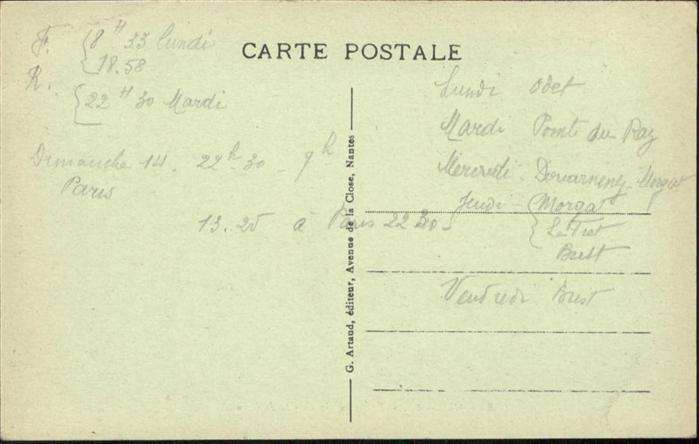 CARTE POSTALE
F. 8 H 33 lundi
18.58
R. 22 H 30 Mardi
Dimanche 14. 22h.30 9h
Paris
13.25 a Paris 22
G. Artaud, éditeur, Avenue de la Close, Nantes
Lundi Odet
Mardi Pointe du Raz
Mercredi - Douarnenez - Morgat
Jeudi Morgat
Le Fret
Brest
Vendredi. Brest